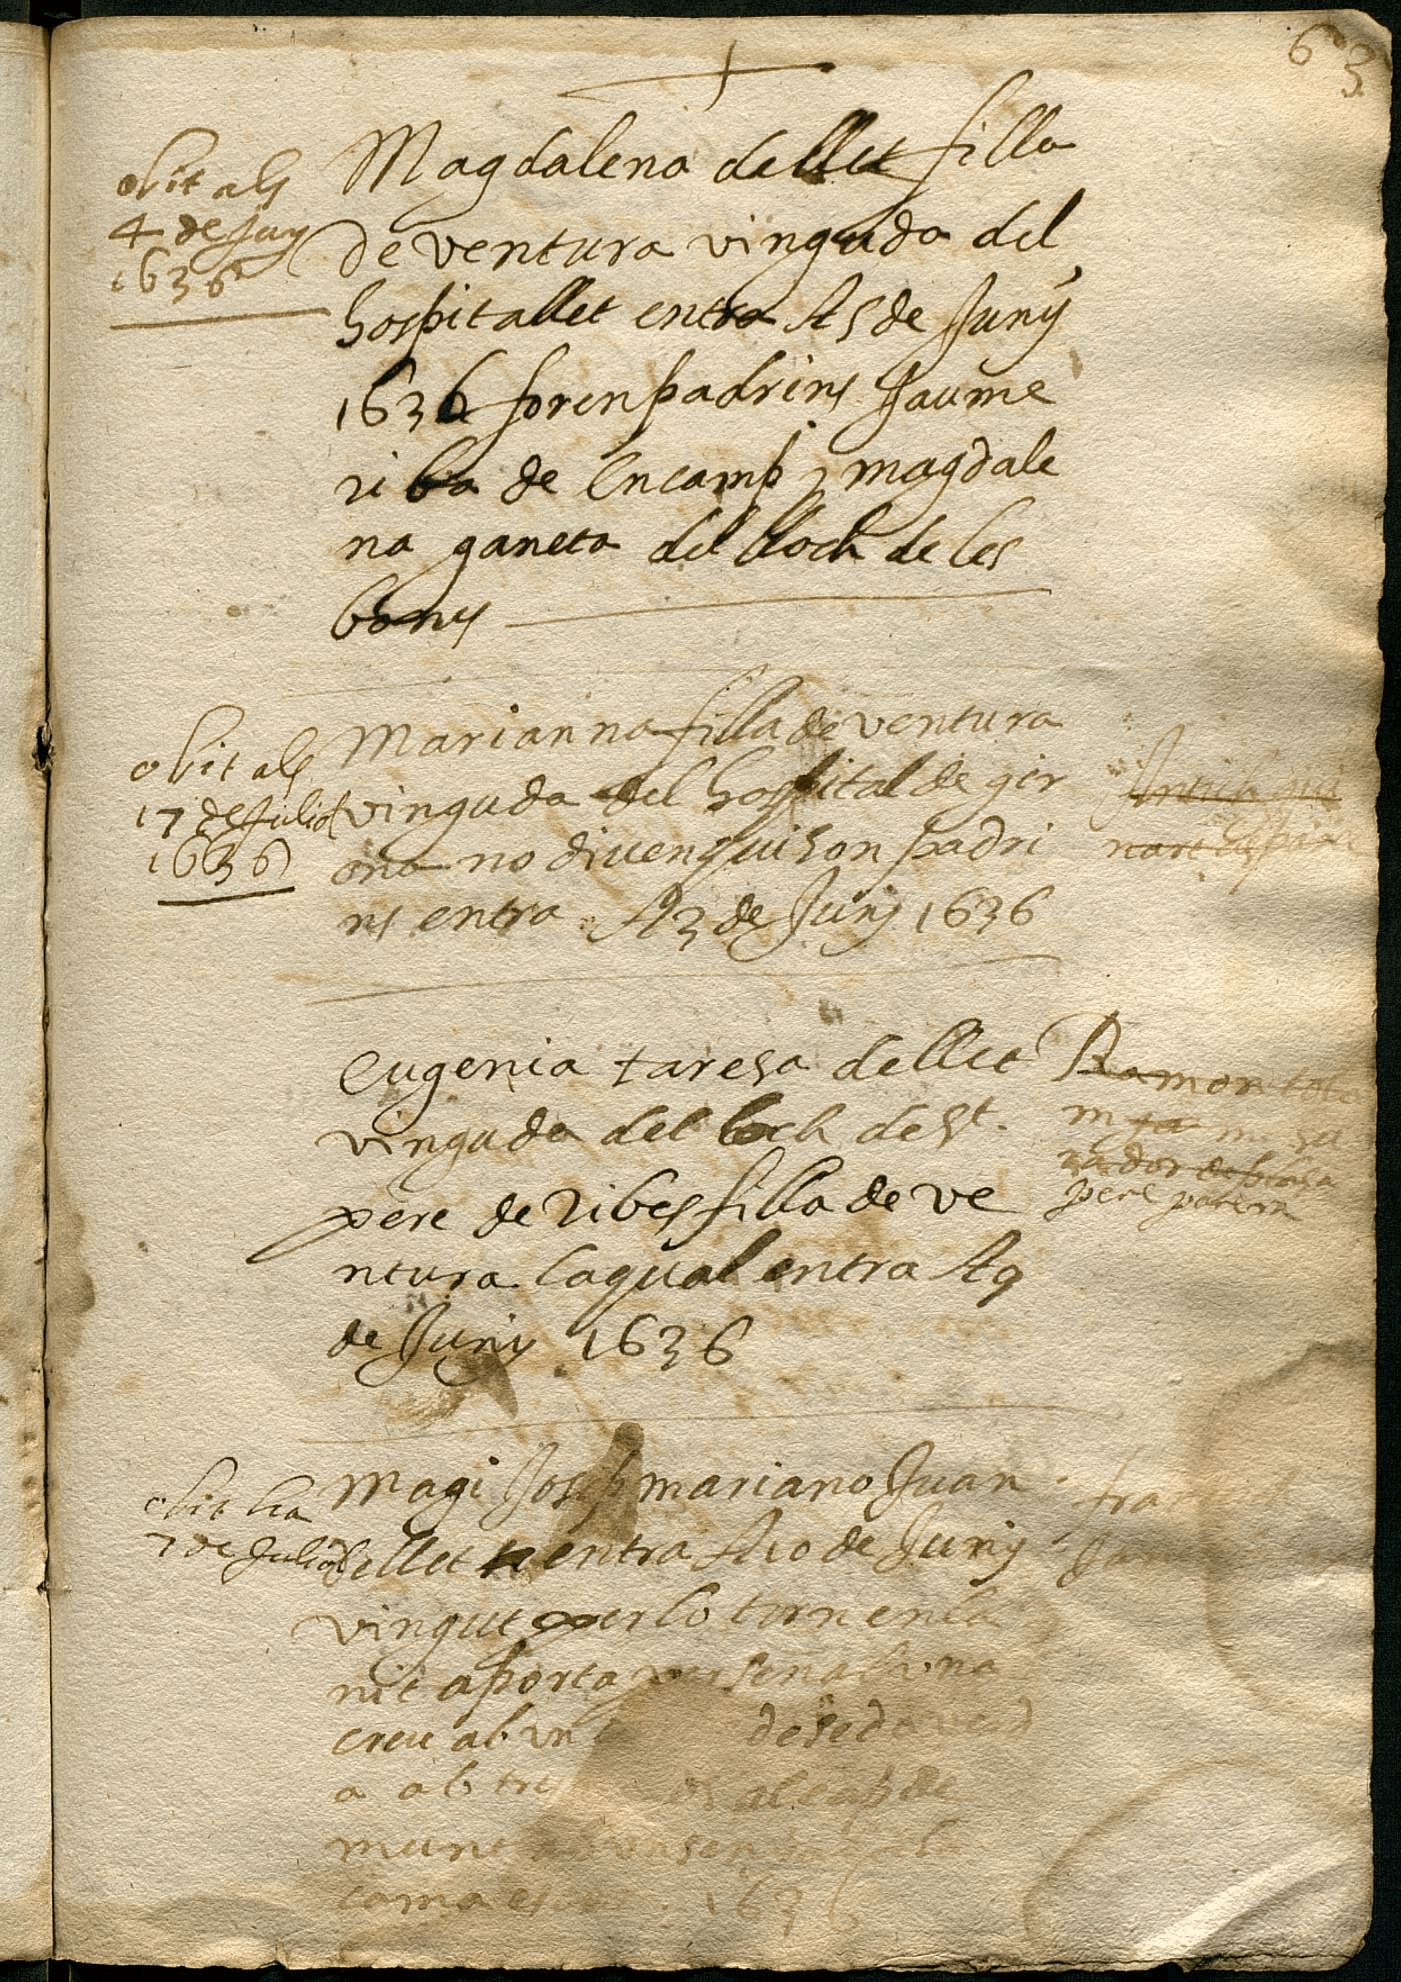 63
obit als
4 de Juny
1636
Magdalena dellet filla
de ventura vinguda del
hospitallet entra A 5 de Juny
1636 foren padrins Jaume
riba de Encamp y magdale
na ganeta del lloch de les
bonys
obit als
17 de Juliol
1636
Marianna filla de ventura
vinguda del hospital de gir
ona no di vengui son padri
ns entra A 3 de Juny 1636
Eugenia taresa dellet
vinguda del loch de St.
pere de Ribes filla de ve
ntura laqual entra A 9
de Juny 1636
Ramon
pere
obit
7 de Juliol
Magi Joseph mariano Juan
dellet entra A 10 de Juny
vingut per lo torn en la
nit aporta per señal una
creu ab un de seda verd
a ab tres al cap de
munt
1636